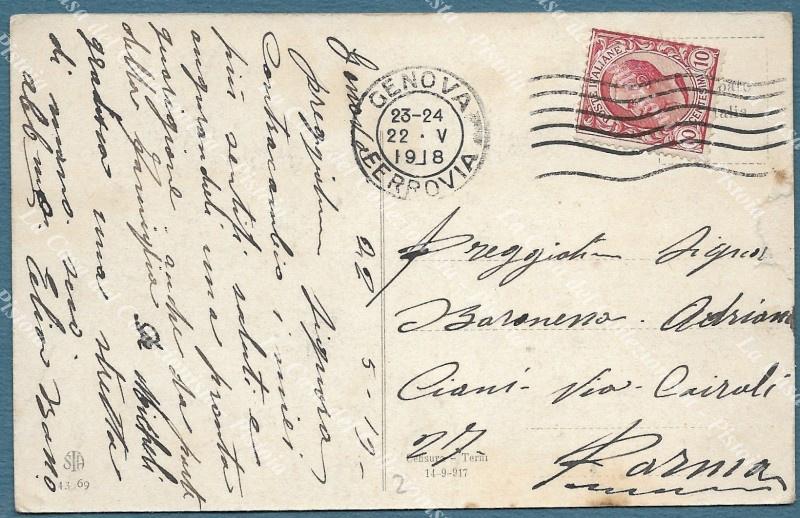 Genova 22-5-19-
Preggi Signora
Contracambio i miei
più sentiti saluti e
augurandoli una pronta
guarigione anche da parte
della famiglia De Micheli
gradisca una stretta
di mano suo
GENOVA
23-24
22 · V
1918
FERROVIA
POSTE ITALIANE
10
Preggi Signora
Baronessa Adriana
Ciani - Via Cairoli
27.
Parma
Censura - Terni
14-9-917
STA
43 69
2